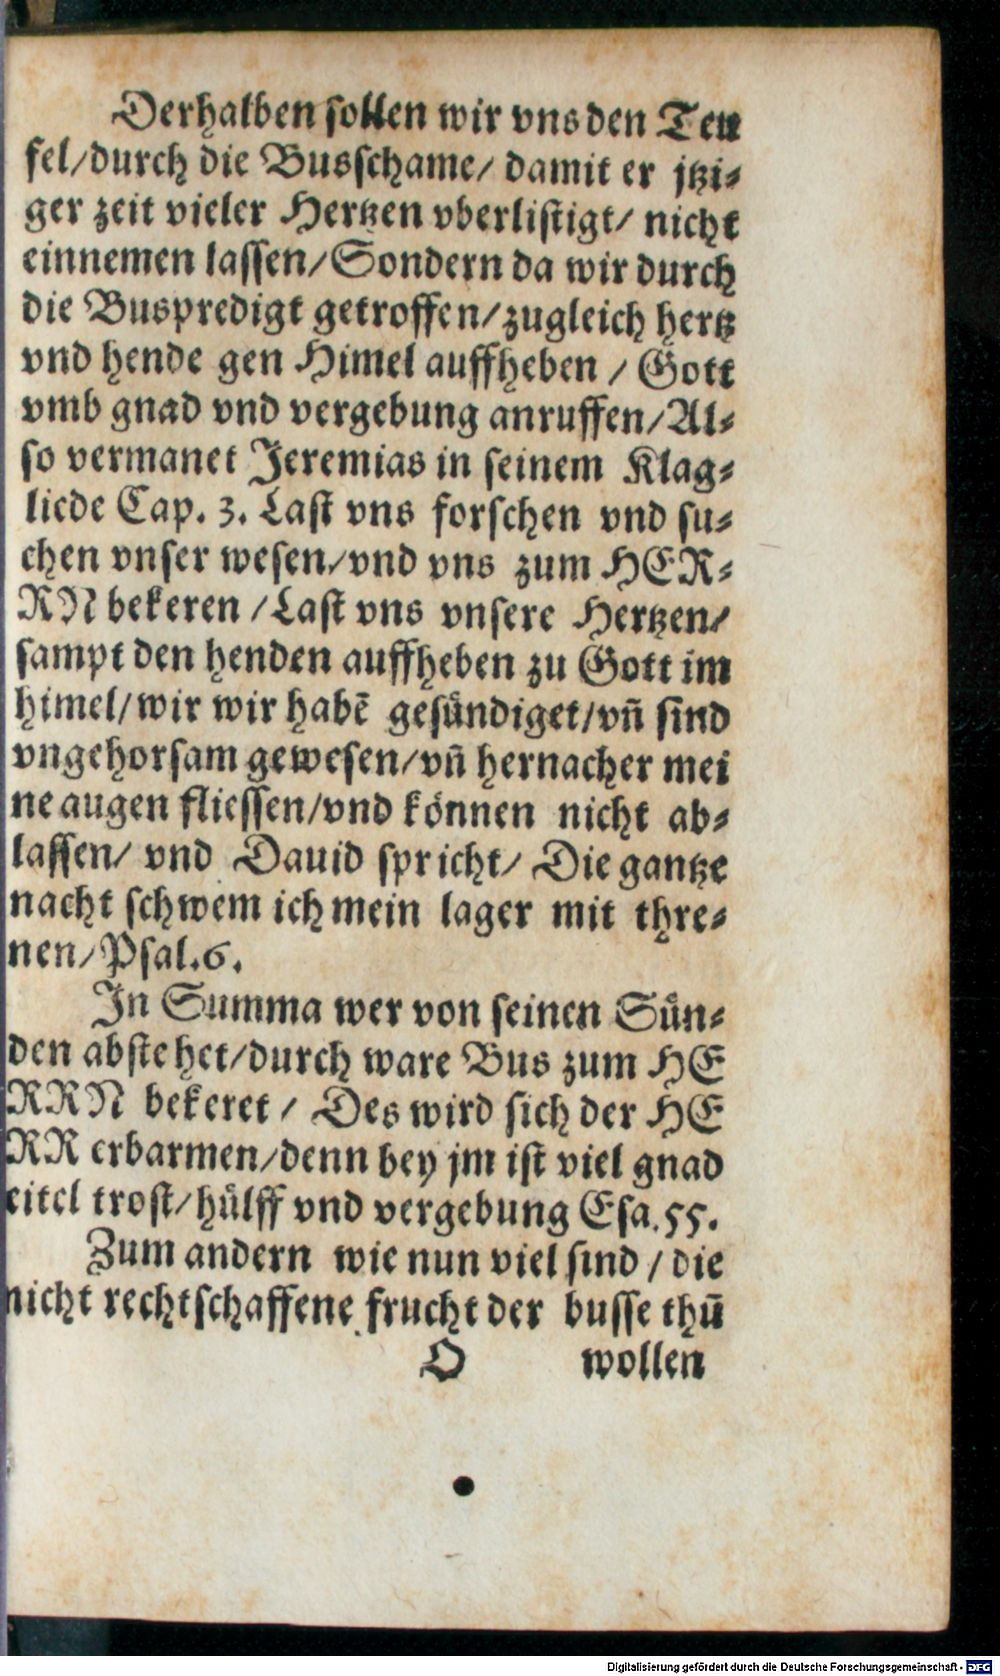 Derhalben sollen wir vns den Teu
fel/durch die Busschame/ damit er jtzi⸗
ger zeit vieler Hertzen vberlistigt/ nicht
einnemen lassen/Sondern da wir durch
die Buspredigt getroffen/zugleich hertz
vnd hende gen Himel auffheben / Gott
vmb gnad vnd vergebung anruffen/Al⸗
so vermanet Jeremias in seinem Klag⸗
liede Cap. 3. Last vns forschen vnd su⸗
chen vnser wesen/vnd vns zum HER⸗
RN bekeren /Last vns vnsere Hertzen/
sampt den henden auffheben zu Gott im
himel/wir wir habē gesündiget/vñ sind
vngehorsam gewesen/vñ hernacher mei
ne augen fliessen/vnd können nicht ab⸗
lassen/ vnd Dauid spricht/ Die gantze
nacht schwem ich mein lager mit thre⸗
nen/Psal.6.
In Summa wer von seinen Sün⸗
den abstehet/durch ware Bus zum HE
RRN bekeret / Des wird sich der HE
RR erbarmen/denn bey jm ist viel gnad
eitel trost/hülff vnd vergebung Esa.55.
Zum andern wie nun viel sind / die
nicht rechtschaffene frucht der busse thū
O wollen
Digitalisierung gefördert durch die Deutsche Forschungsgemeinschaft - DFG